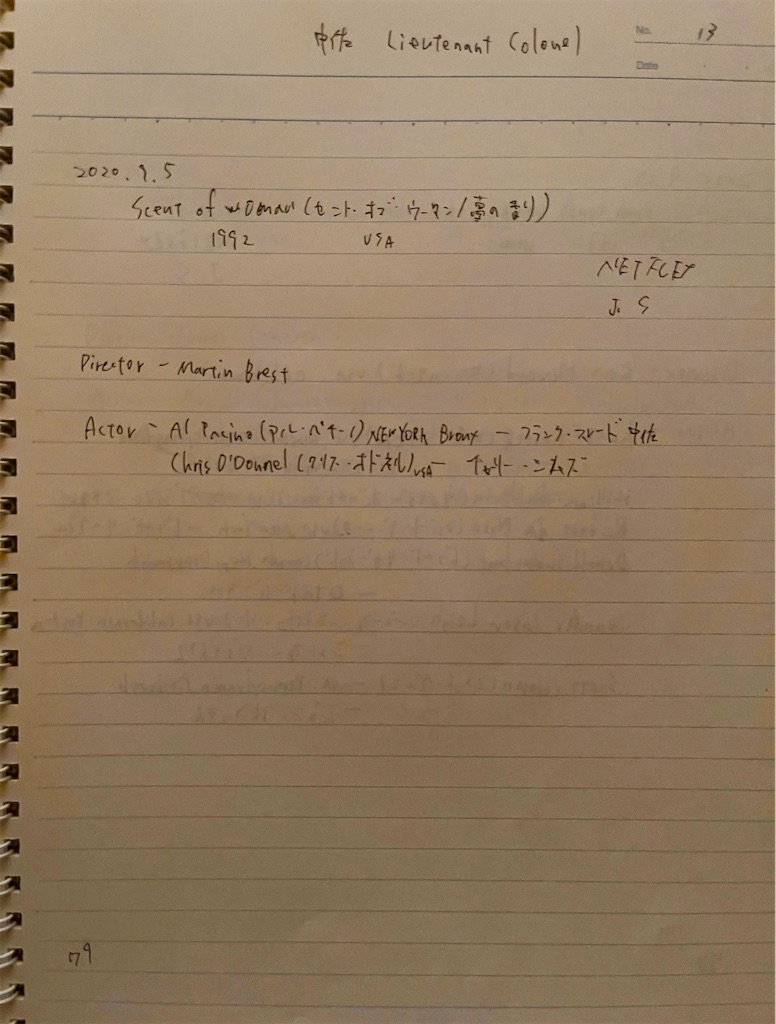 中佐 Lieutenant Colonel
No. 13
Date
2020.9.5
Scent of woman (セント・オブ・ウーマン/夢の香り)
1992 USA
NETFLEX
J. S
Director - Martin Brest
Actor - Al Pacino (アル・パチーノ) NEW YORK Bronx - フランク・スレード 中佐
Chris O'Donnel (クリス・オドネル) USA - チャーリー・シムズ
79